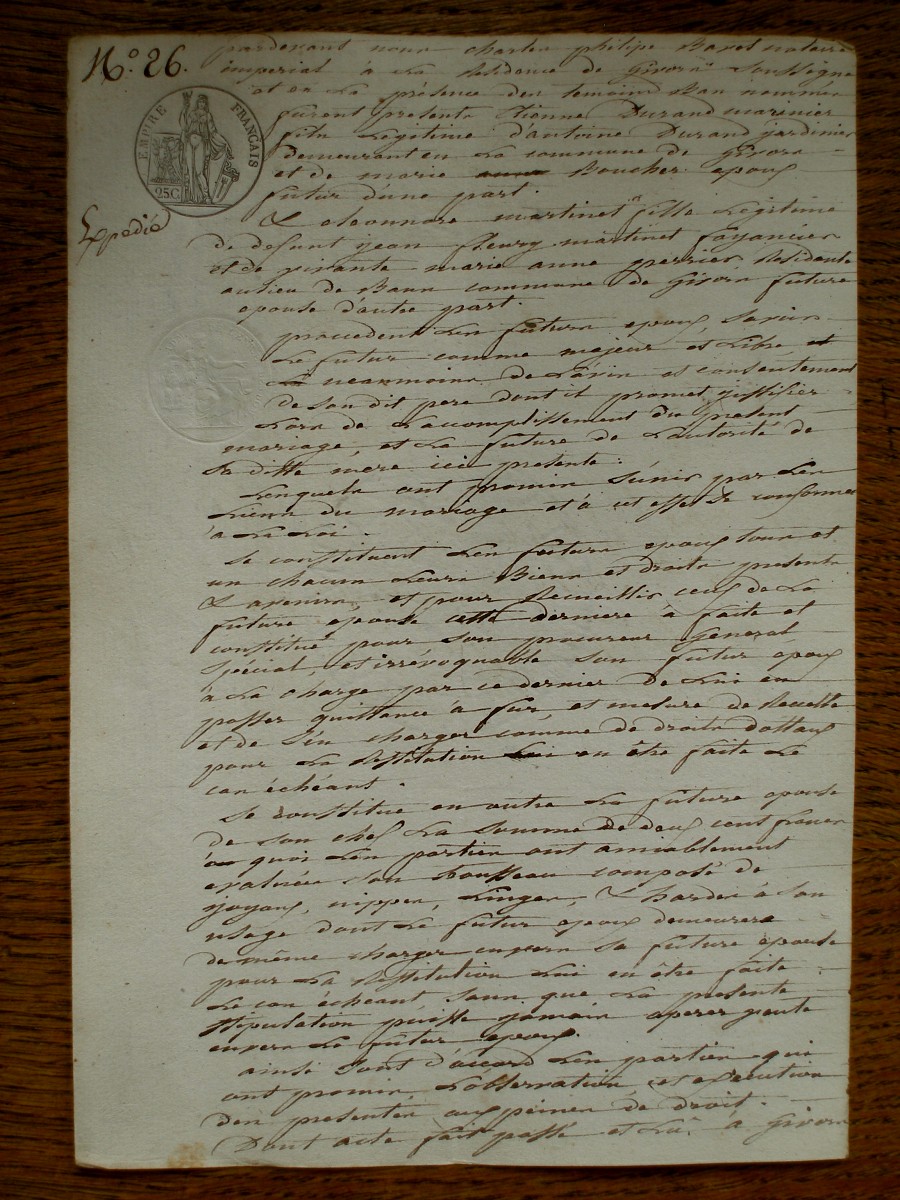 N.o 26.
EMPIRE FRANÇAIS
25C
Expedié
pardevant nous charles philipe notaire
imperial à La Residence de Givors Soussigné
et en La presence des temoins Bas nommes
furent presents Etienne Durand marinier
fils Legitime d'antoine Durand jardinier
demeurant en La commune de Givors
et de marie Boucher epoux
futur d'une part.
& eleonnore martinet fille Legitime
de defunt jean fleury martinet fayancier
et de vivante marie anne perrier Residente
au lieu de Bans commune de Givors future
epouse d'autre part.
procedent Les futurs epoux, savoir
Le futur comme majeur et Libre et
neanmoins de L'avis et consentement
de son dit pere dont il promet justifier
Lors de L'accomplissement du present
mariage, et La future de L'autorité de
Sa ditte mere ici presente.
Lesquels ont promis S'unir par Les
Liens du mariage et à cet effet Se conformer
à La Loi.
Se constituent Les futurs epoux tous et
un chacun Leurs Biens et droits presents
& avenirs, et pour Recueillir ceux de La
future epouse cette derniere à faite et
constitué pour son procureur General
Spécial, et irrévoquable son futur epoux
à La charge par ce dernier de Lui en
passer quittance à fur, et mesure de Recette
et de S'en charger comme de droits dottaux
pour La Restitution Lui en être faite Le
cas échéant.
Se constitue en outre La future epouse
de son chef La Somme de deux cent francs
à quoi Les parties ont amiablement
evaluée Son trousseau composé de
joyaux, nippes, Linges, & hardes à Son
usage dont Le futur epoux demeurera
de même charger envers Sa future epouse
pour La Restitution Lui en être faite
Le cas échéant Sans que La presente
Stipulation puisse jamais operer vente
envers Le futur epoux.
ainsi Sont d'accord Les parties qui
ont promis L'observation, et execution
des presentes aux peines de droit.
Dont acte fait passé et Lu à Givors